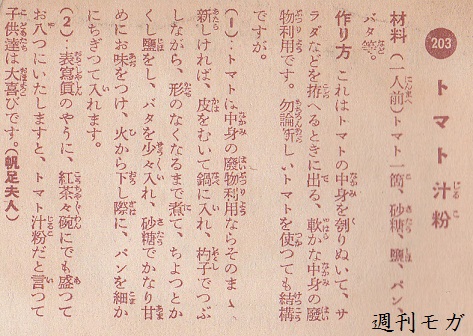 203 トマト汁粉
材料(一人前)トマト一箇、砂糖、鹽、パン、
バタ等。
作り方 これはトマトの中身を刳りぬいて、サ
ラダなどを拵へるときに出る、軟かな中身の廢
物利用です。勿論新しいトマトを使つても結構
ですが。
(1)‥トマトは中身の廢物利用ならそのまゝ
新しければ、皮をむいて鍋に入れ、杓子でつぶ
しながら、形のなくなるまで煮て、ちよつとか
くし鹽をし、バタを少々入れ、砂糖でかなり甘
めにお味をつけ、火から下し際に、パンを細か
にちぎつて入れます。
(2)‥表寫眞のやうに、紅茶々碗にでも盛つて
お八つにいたしますと、トマト汁粉だと言つて
子供達は大喜びです。(帆足夫人)
週刊モガ